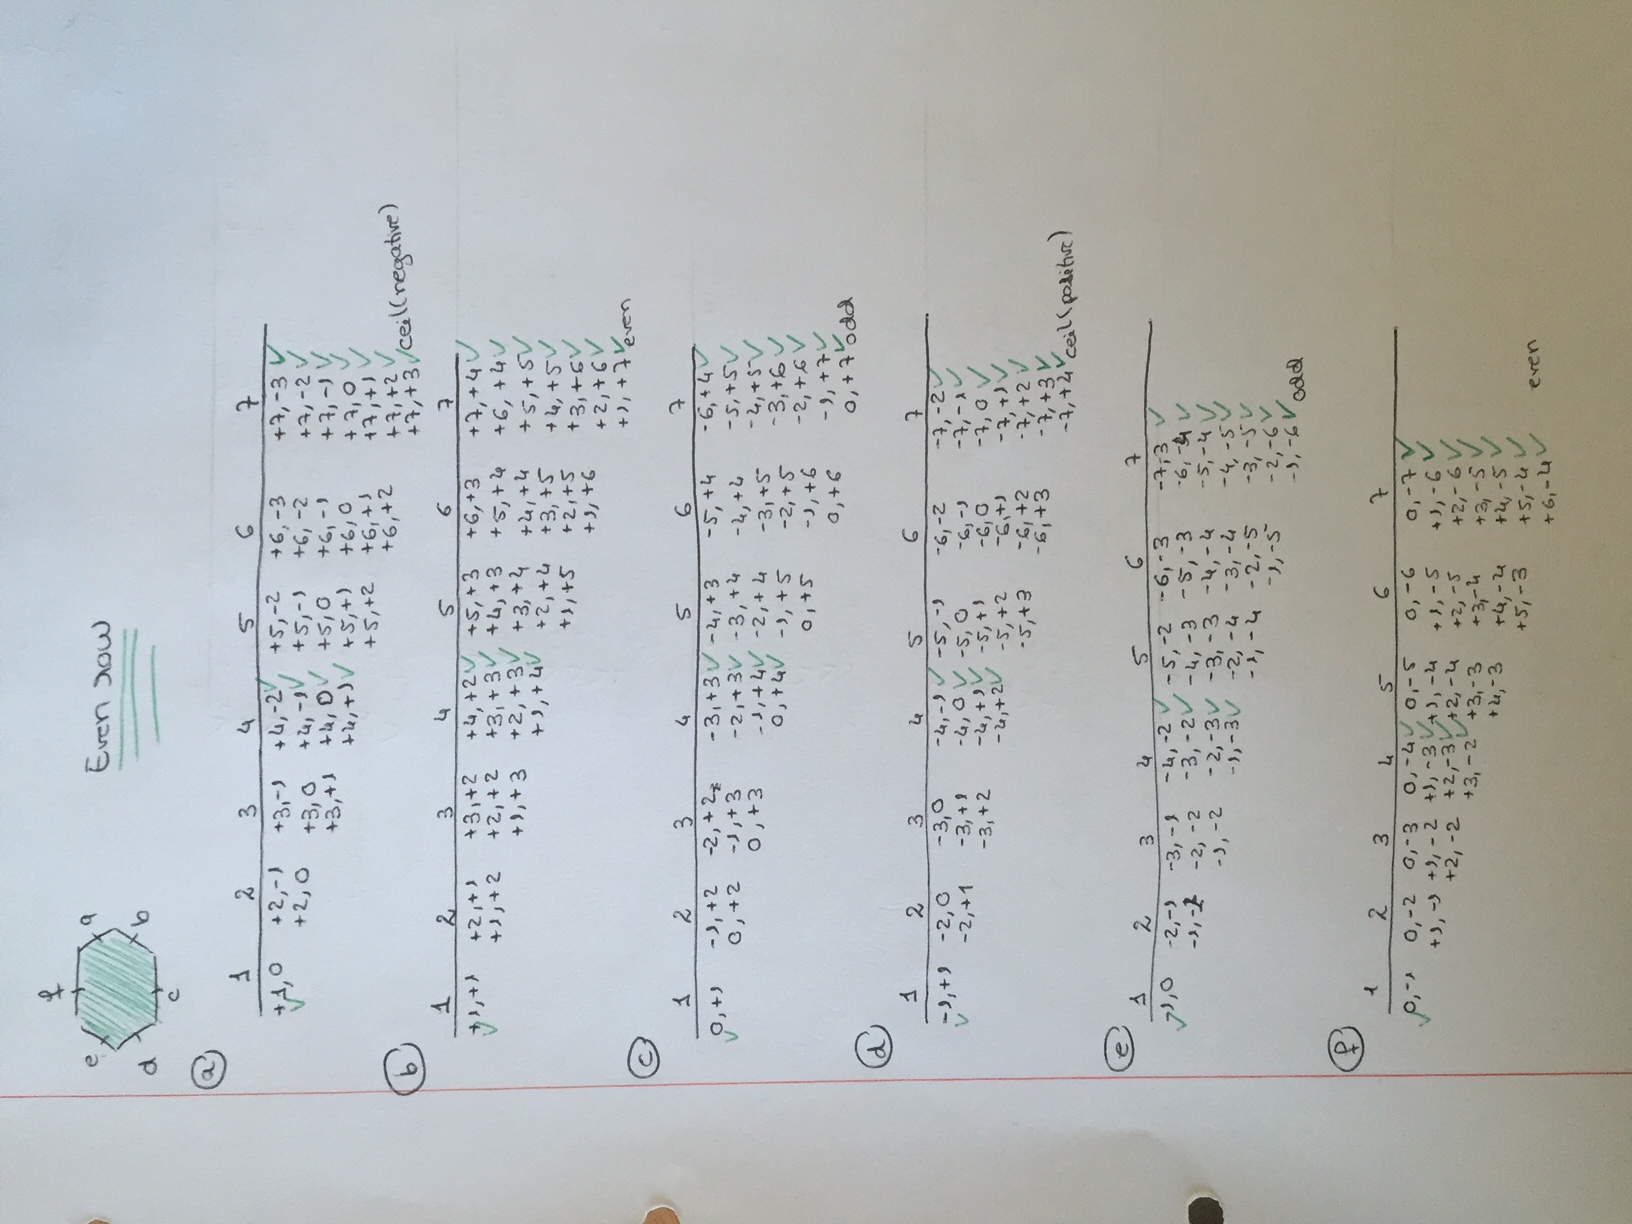 f
e a
d b
c
Even row
a
1 2 3 4 5 6 7
+1,0 +2,-1 +3,-1 +4,-2 +5,-2 +6,-3 +7,-3
+2,0 +3,0 +4,-1 +5,-1 +6,-2 +7,-2
+3,+1 +4,0 +5,0 +6,-1 +7,-1
+4,+1 +5,+1 +6,0 +7,0
+5,+2 +6,+1 +7,+1
+6,+2 +7,+2
+7,+3 ceil(negative)
b
1 2 3 4 5 6 7
+1,+1 +2,+1 +3,+2 +4,+2 +5,+3 +6,+3 +7,+4
+1,+2 +2,+2 +3,+3 +4,+3 +5,+4 +6,+4
+1,+3 +2,+3 +3,+4 +4,+4 +5,+5
+1,+4 +2,+4 +3,+5 +4,+5
+1,+5 +2,+5 +3,+6
+1,+6 +2,+6
+1,+7 even
c
1 2 3 4 5 6 7
0,+1 -1,+2 -2,+2 -3,+3 -4,+3 -5,+4 -6,+4
0,+2 -1,+3 -2,+3 -3,+4 -4,+4 -5,+5
0,+3 -1,+4 -2,+4 -3,+5 -4,+5
0,+4 -1,+5 -2,+5 -3,+6
0,+5 -1,+6 -2,+6
0,+6 -1,+7
0,+7 odd
d
1 2 3 4 5 6 7
-1,+1 -2,0 -3,0 -4,-1 -5,-1 -6,-2 -7,-2
-2,+1 -3,+1 -4,0 -5,0 -6,-1 -7,-1
-3,+2 -4,+1 -5,+1 -6,0 -7,0
-4,+2 -5,+2 -6,+1 -7,+1
-5,+3 -6,+2 -7,+2
-6,+3 -7,+3
-7,+4 ceil(positive)
e
1 2 3 4 5 6 7
-1,0 -2,-1 -3,-1 -4,-2 -5,-2 -6,-3 -7,3
-2,-2 -3,-2 -4,-3 -5,-3 -6,-4
-1,-2 -2,-3 -3,-3 -4,-4 -5,-4
-1,-3 -2,-4 -3,-4 -4,-5
-1,-4 -2,-5 -3,-5
-1,-5 -2,-6
-1,-6 odd
f
1 2 3 4 5 6 7
0,-1 0,-2 0,-3 0,-4 0,-5 0,-6 0,-7
+1,-1 +1,-2 +1,-3 +1,-4 +1,-5 +1,-6
+2,-2 +2,-3 +2,-4 +2,-5 +2,-6
+3,-2 +3,-3 +3,-4 +3,-5
+4,-3 +4,-4 +4,-5
+5,-3 +5,-4
+6,-4
even